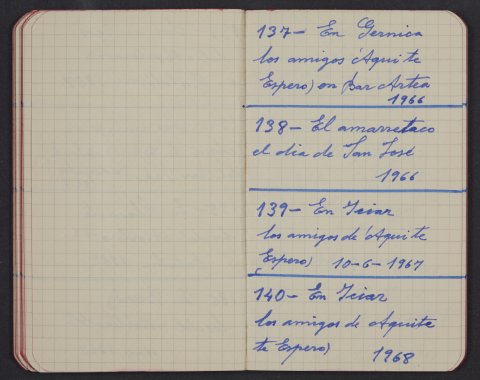 137- En Gernica
los amigos (Aqui te
Espero) en Bar Artea
1966
138- El amarretaco
el dia de San José
1966
139- En Iciar
los amigos de (Aqui te
Espero) 10-6-1967
140- En Iciar
los amigos de Aquite
te Espero)
1968